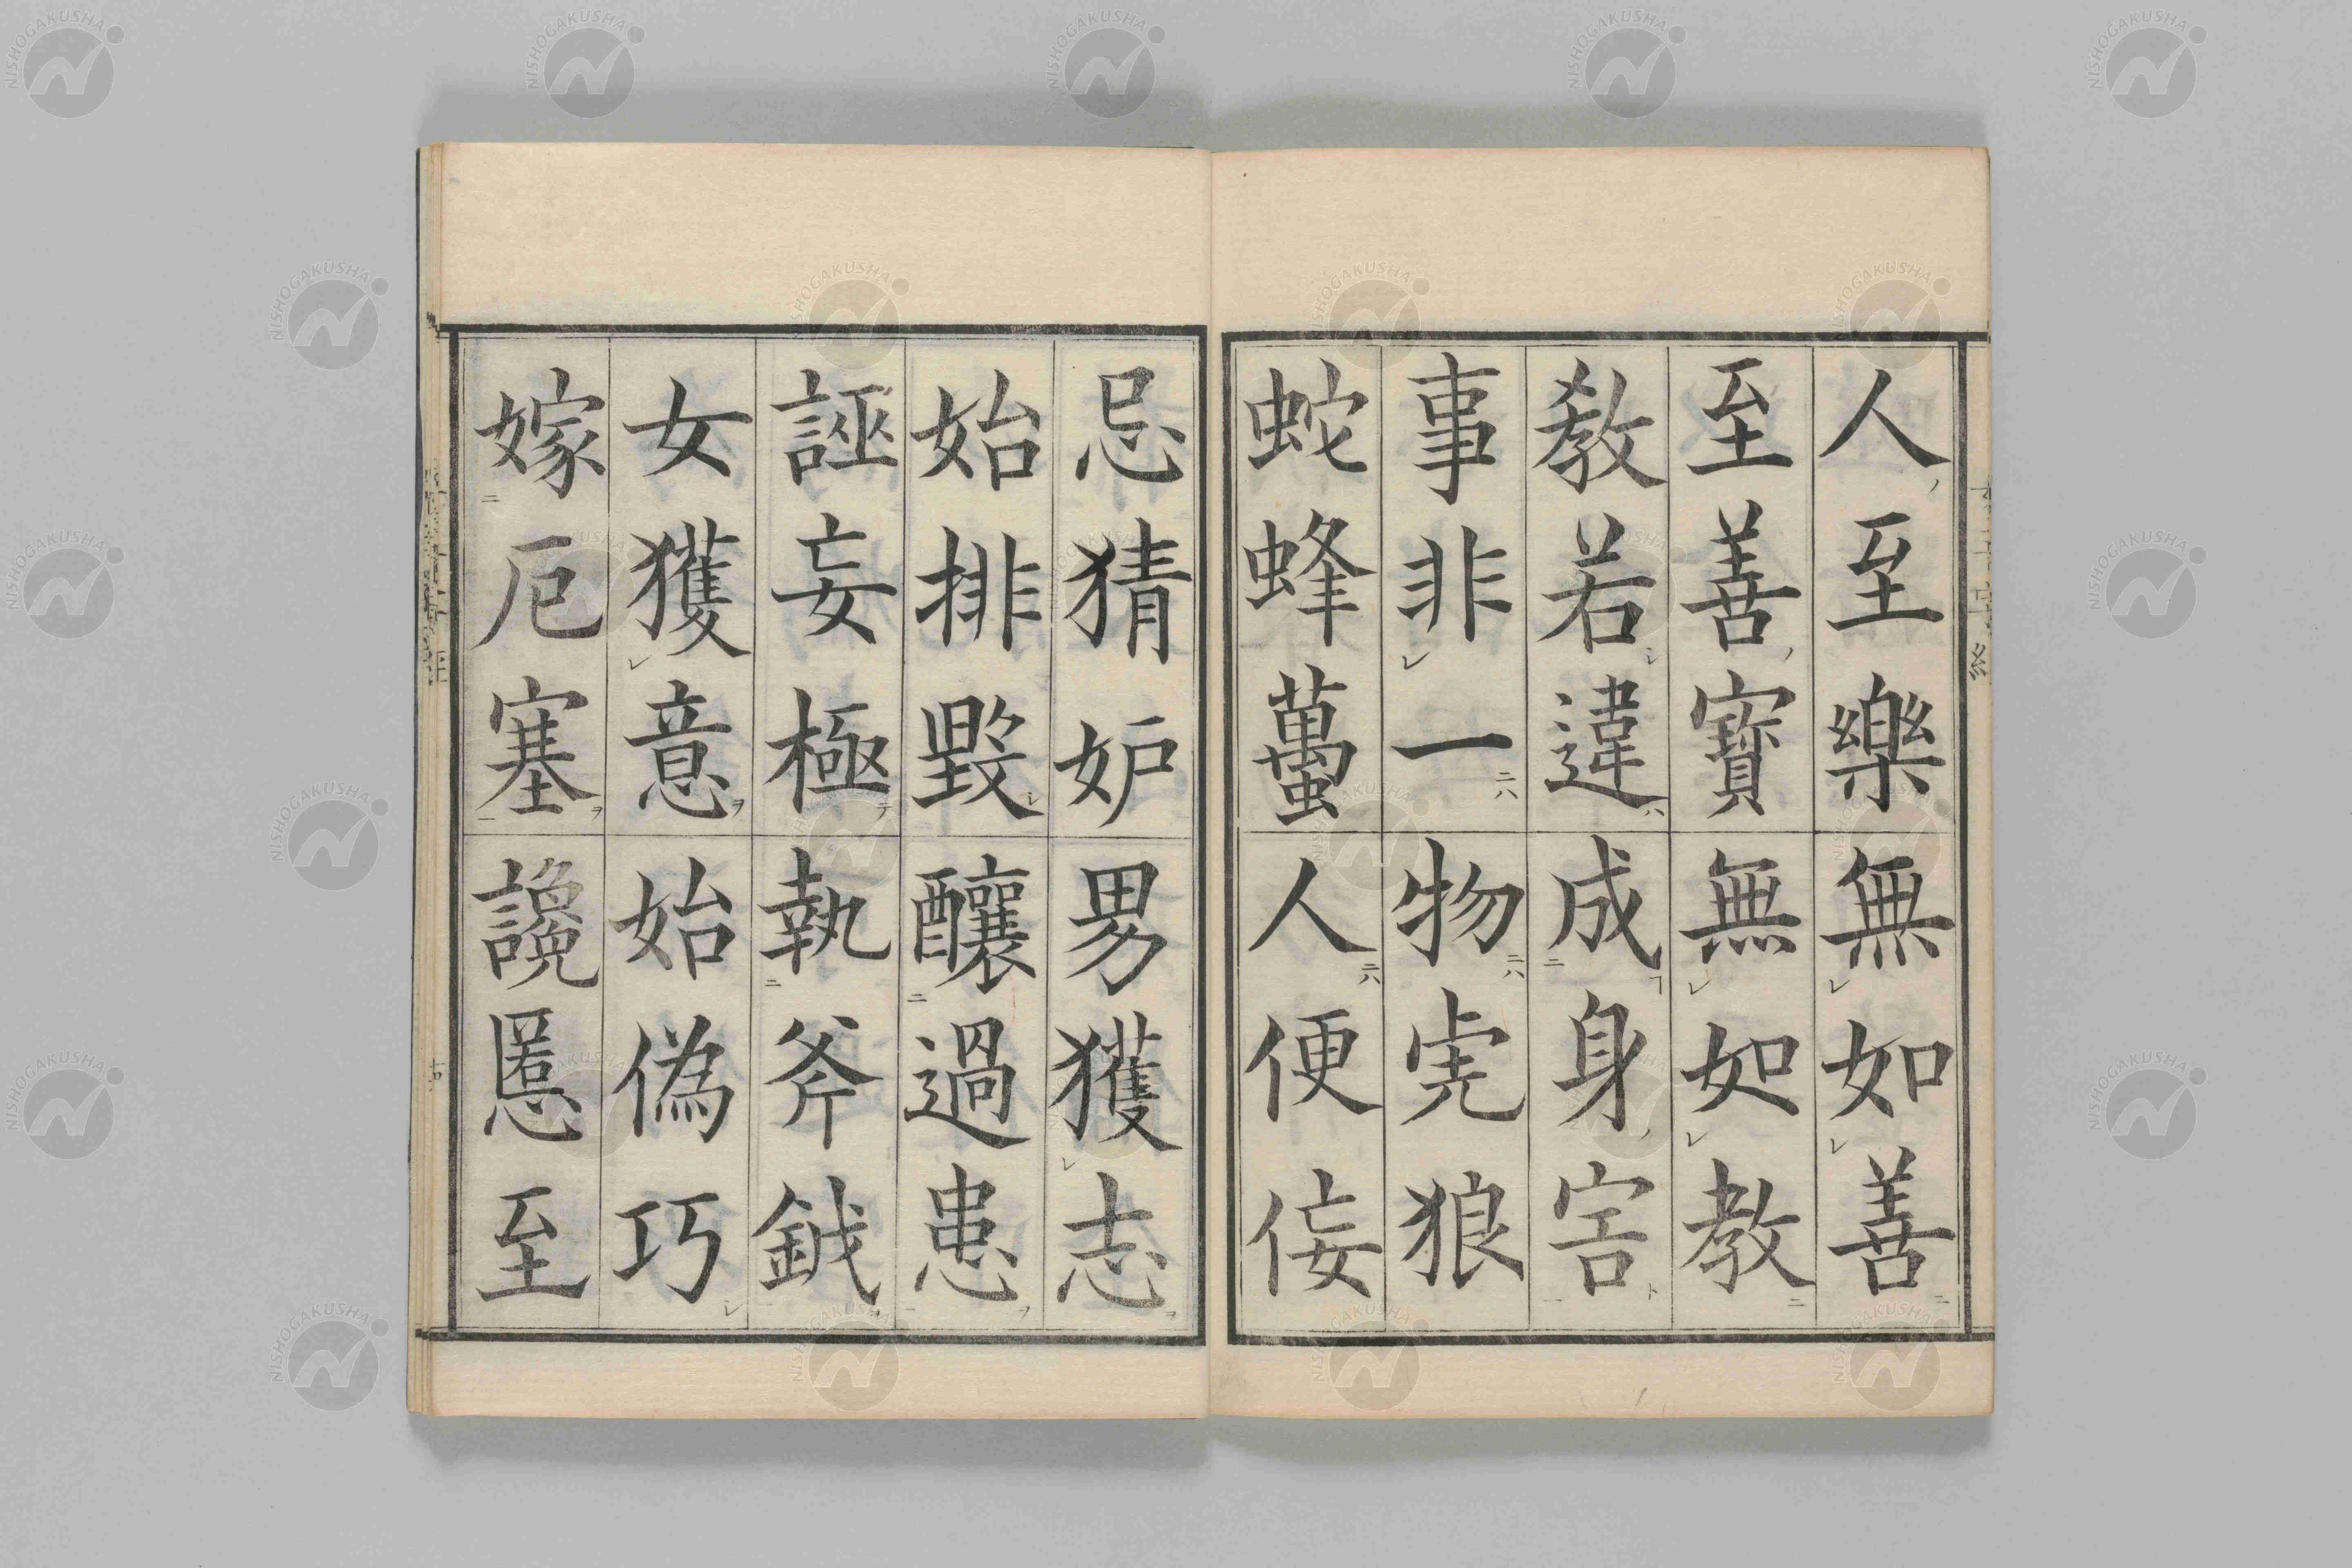 人至樂無如善
至善寶無如教
教若違成身害
事非一物虎狼
蛇蜂蠆人便佞
忌猜妒男獲志
始排毀釀過患
誣妄極執斧鉞
女獲意始偽巧
嫁厄塞讒慝至
NISHOGAKUSHA